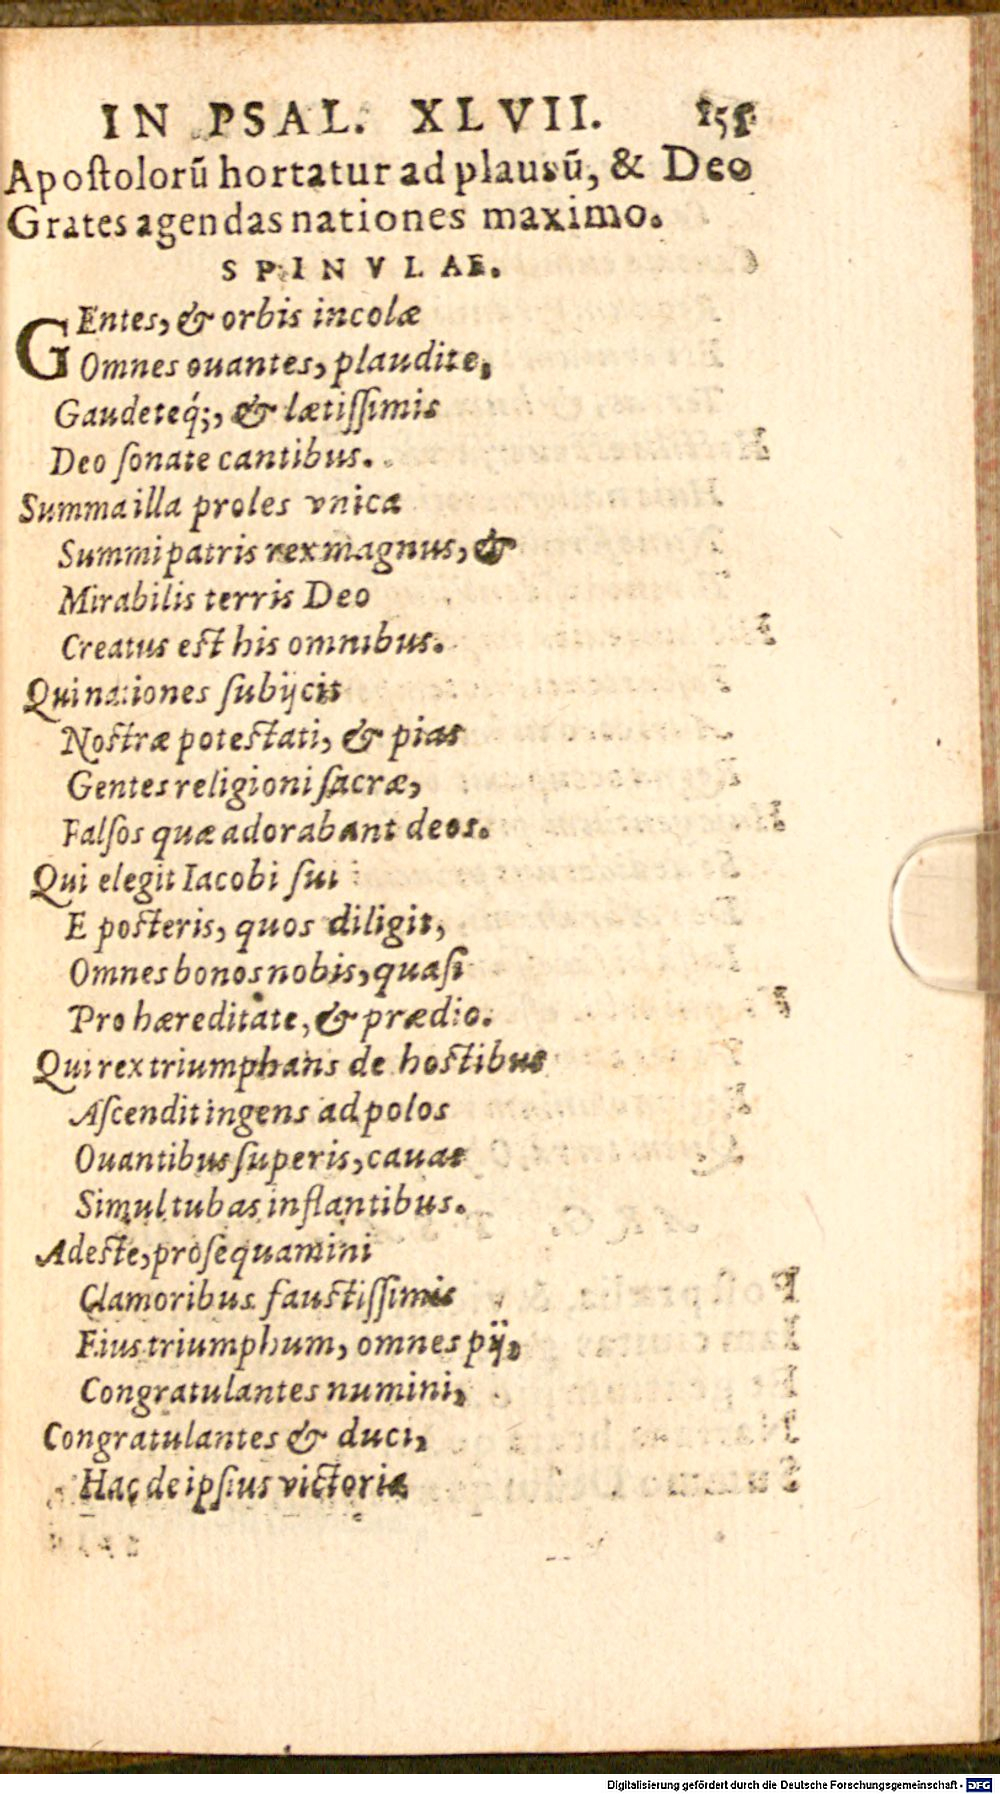 IN PSAL. XLVII. 155
Apoſtolorū hortatur ad plausū, & Deo
Grates agendas nationes maximo.
SPINVLAE.
GEntes, & orbis incolæ
Omnes ouantes, plaudite,
Gaudeteq́;, & lætiſſimis
Deo ſonate cantibus.
Summa illa proles vnica
Summi patris rex magnus, &
Mirabilis terris Deo
Creatus eſt his omnibus.
Qui nationes ſubijcit
Noſtræ poteſtati, & pias
Gentes religioni ſacræ,
Falſos quæ adorabant deos.
Qui elegit Iacobi ſui
E poſteris, quos diligit,
Omnes bonos nobis, quaſi
Pro hæreditate, & prædio.
Qui rex triumphans de hoſtibus
Aſcendit ingens ad polos
Ouantibus ſuperis, cauas
Simul tubas inflantibus.
Adeſte, proſequamini
Clamoribus fauſtiſſimis
Eius triumphum, omnes pij,
Congratulantes numini,
Congratulantes & duci,
Hac de ipſius victoria
Digitalisierung gefördert durch die Deutsche Forschungsgemeinschaft - DFG